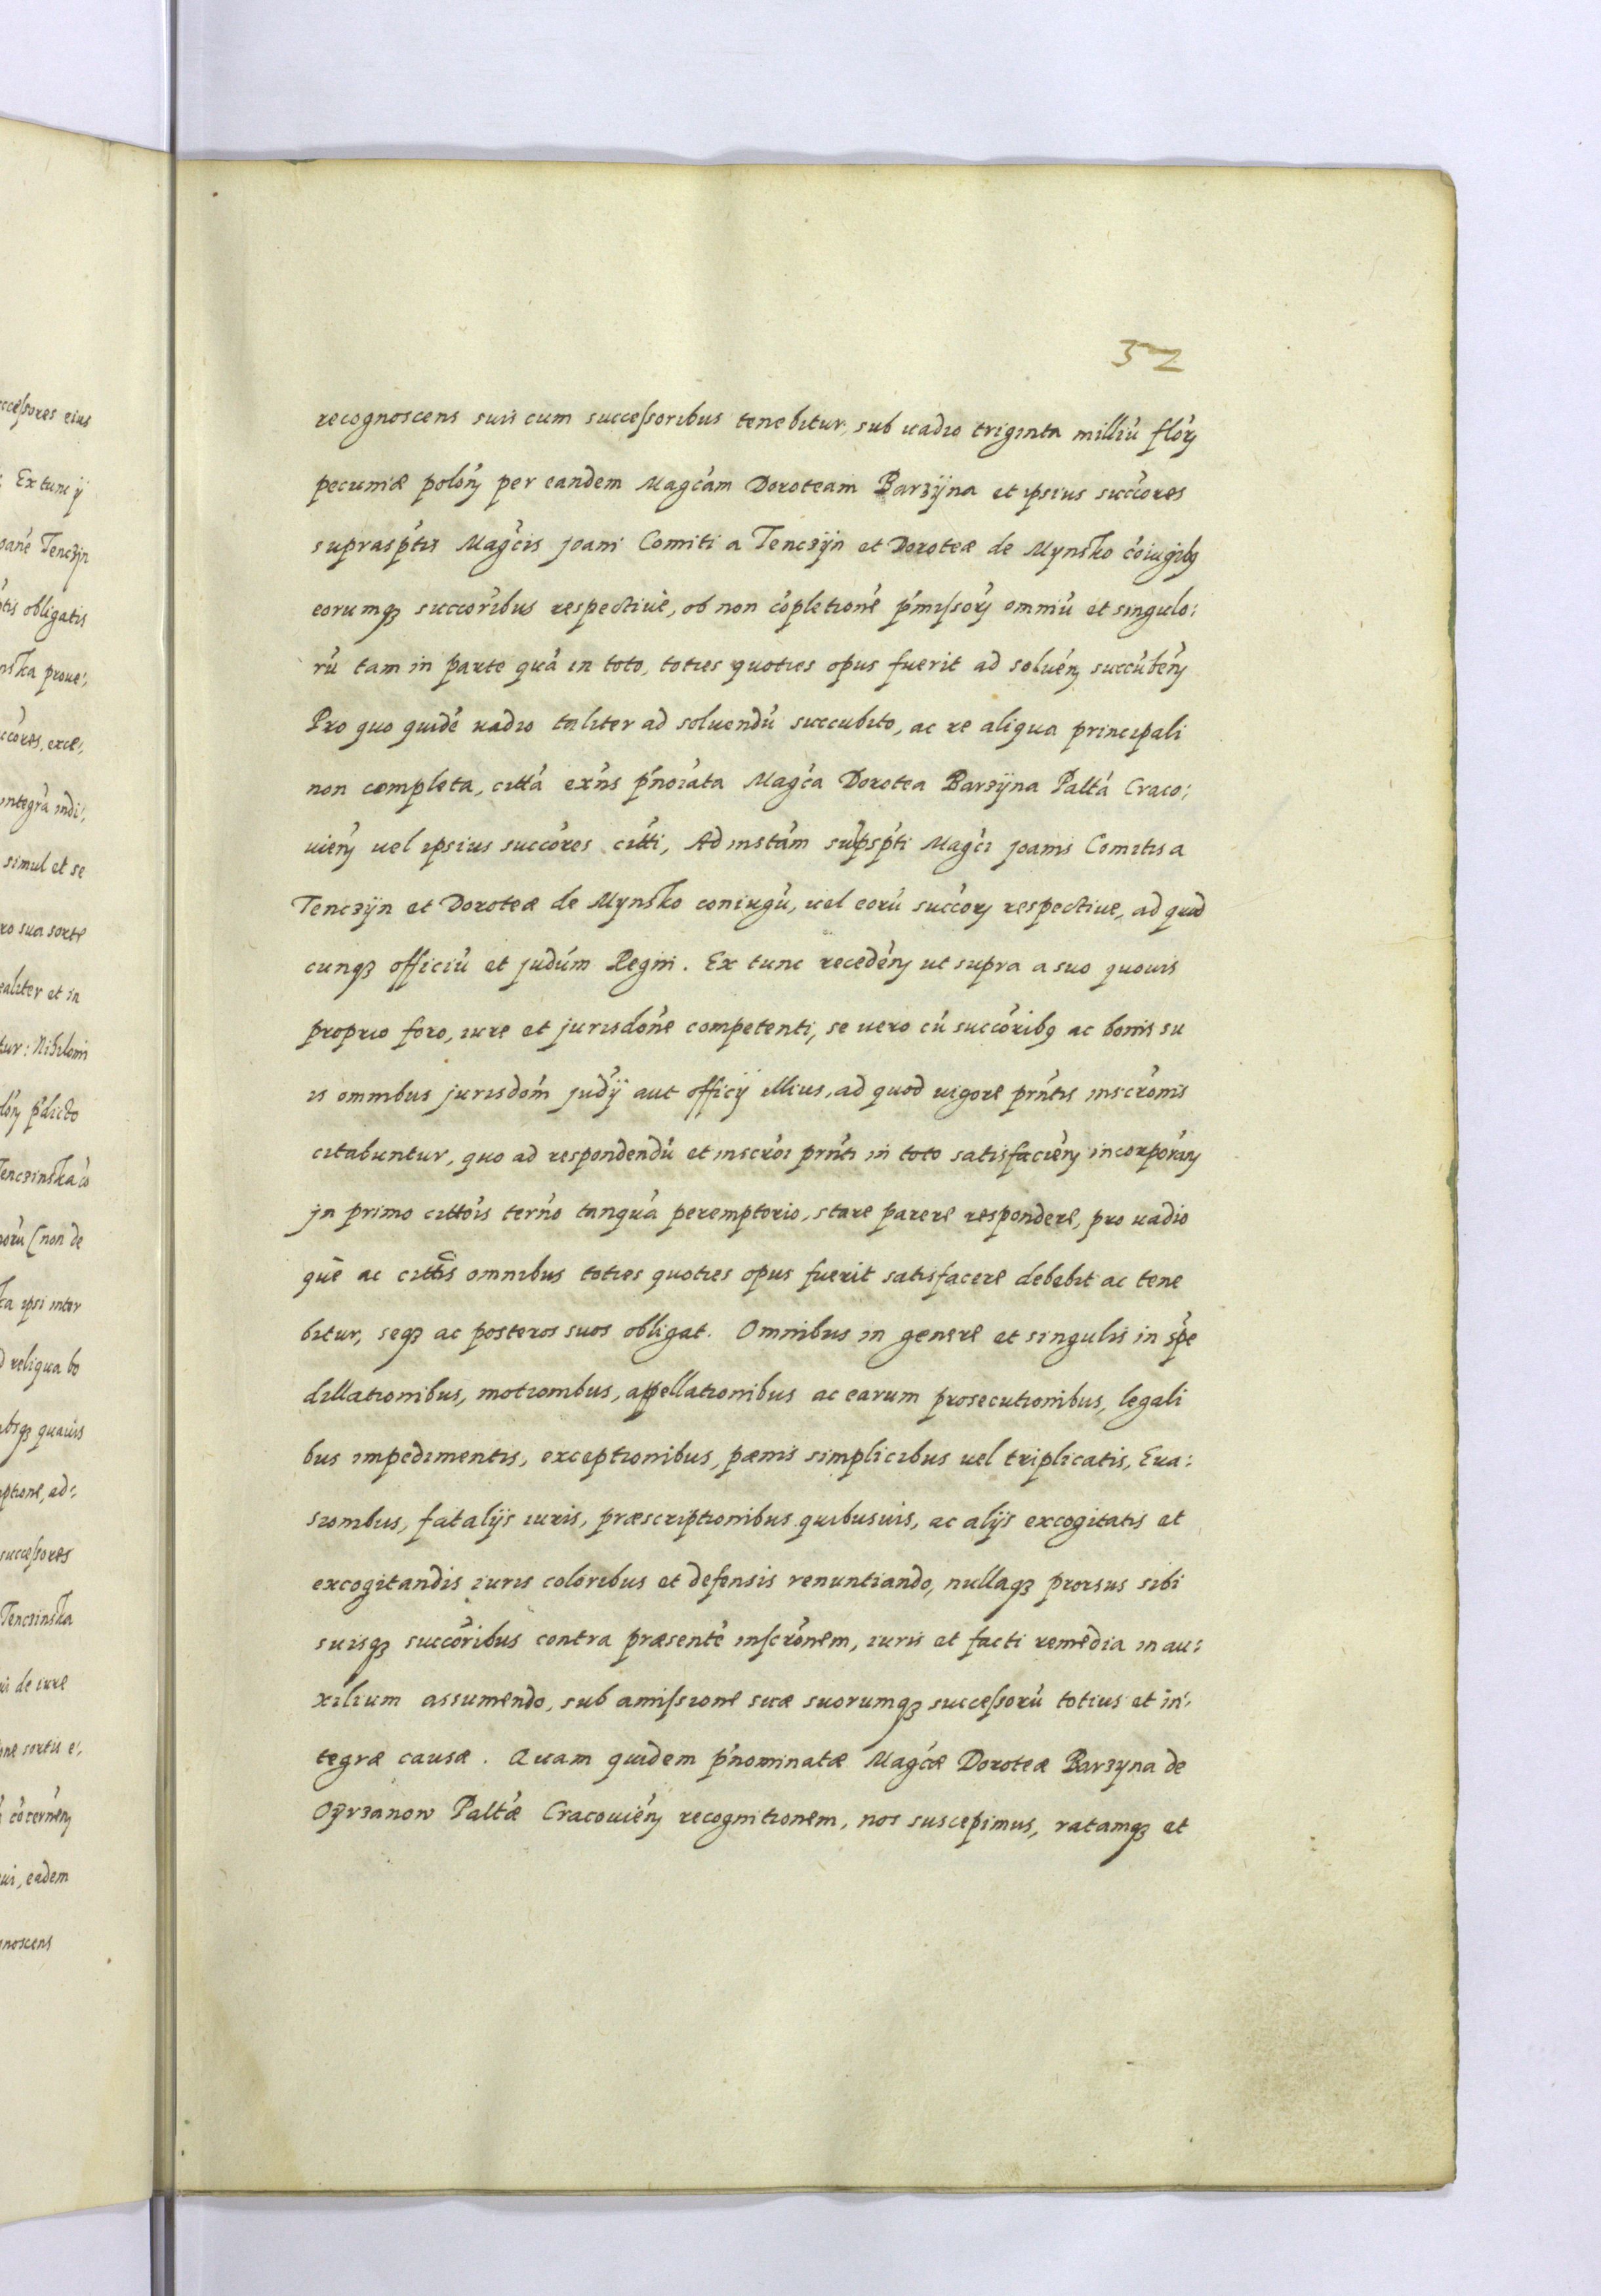 ccessores eius
Ex tunc ÿ
oane Tenczyn
tis obligatis
nska proue:
ccores, exce:
integrā indi:
simul et se
ro sua sorte
ealiter et in
tur: Nihilomi
p̄dicto
enczinska co
(non de
ka ipsi inter
reliqua bo
bsq₃ quauis
ptione, ad:
successores
Tenczinska
de iure
one sortis e:
cōcernen̄
eadem
gnoscens
32
recognoscens suis cum successoribus tenebitur, sub uadio triginta milliū flor̄
pecuniæ polon̄ per eandem Magcām Doroteam Barzÿna et ipsius succōres
supraspt̄is Magcīs Joani Comiti a Tenczÿn et Doroteæ de Mynsko cōiugib₉
eorumq₃ succōribus respectiuè, ob non cōpletionē p̄missor̄ omniū et singulo:
rū tam in parte quā in toto, toties quoties opus fuerit ad soluēn̄ succūbēn̄
Pro quo quidē uadio taliter ad soluendū succubito, ac re aliqua principali
non completa, citt̄a exn̄s p̄noīata Magcā Dorotea Barzÿna Palt̄a Craco:
uien̄ uel ipsius succōres citt̄i, Ad instām sup̄spt̄i Magcī Joanis Comitis a
Tenczÿn et Doroteæ de Mynsko coniugū, uel eorū succōr̄ respectiue, ad quod
cunq₃ officiū et judūm Regni. Ex tunc recedēn̄ ut supra a suo quouis
proprio foro, iure et jurisdōne competenti, se uero cū succōrib₉ ac bonis su
is omnibus jurisdōm̄ judÿ aut officÿ illius, ad quod uigore prn̄tis inscrōnis
citabuntur, quo ad respondendū et inscrōi prn̄ti in toto satisfaciēn̄ incorporān̄
jn primo citt̄ōis ternō tanquā peremptorio, stare parere respondere, pro uadio
quē ac citt̄is omnibus toties quoties opus fuerit satisfacere debebit ac tene
bitur, seq₃ ac posteros suos obligat. Omnibus in genere et singulis in sp̄e
dillationibus, motionibus, appellationibus ac earum prosecutionibus, legali
bus impedimentis, exceptionibus, pænis simplicibus uel triplicatis, Eua:
sionibus, fatalÿs iuris, præscriptionibus quibusuis, ac alÿs excogitatis et
excogitandis iuris coloribus et defensis renuntiando, nullaq₃ prorsus sibi
suisq₃ succōribus contra præsentē inscrōnem, iuris et facti remedia in au:
xilium assumendo, sub amissione suæ suorumq₃ successorū totius et in:
tegræ causæ. Quam quidem p̄nominatæ Magcæ Doroteæ Barzyna de
Oÿrzanow Palt̄æ Cracouien̄ recognitionem, nos suscepimus, ratamq₃ et